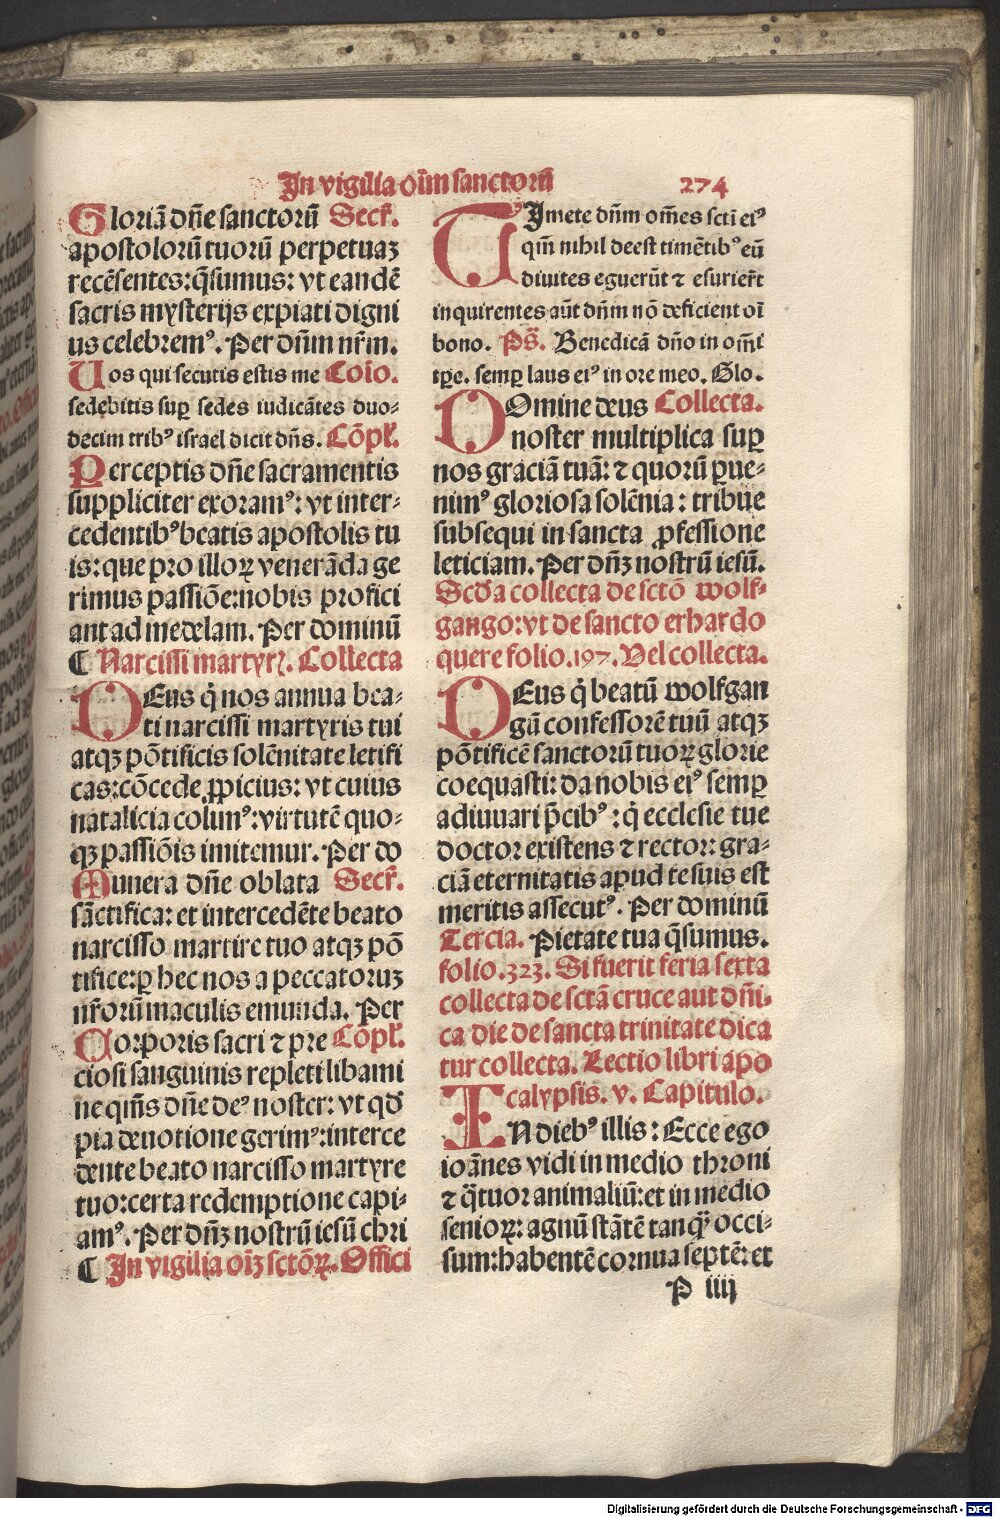 In vigilia oīm sanctorū 274
Gloriā dn̄e sanctorū Secr̄.
apostolorū tuorū perpetuaꝫ
recēsentes: q̄sumus: vt eandē
sacris mysterijs expiati digni
us celebremꝰ. Per dn̄m nr̄m.
Uos qui secutis estis me Coīo.
sedebitis suꝑ sedes iudicātes duo-
decim tribꝰ israel dicit dn̄s. Cōpl̄.
Perceptis dn̄e sacramentis
suppliciter exoramꝰ: vt inter-
cedentibꝰ beatis apostolis tu
is: que pro illoꝝ venerāda ge
rimus passiōe: nobis profici
ant ad medelam. Per dominū
¶ Narcissi martyrꝭ. Collecta
DEus q̇ nos annua bea-
ti narcissi martyris tui
atqꝫ pōtificis solēnitate letifi
cas: cōcede ꝓpicius: vt cuius
natalicia colimꝰ: virtutē quo-
qꝫ passiōis imitemur. Per do
Munera dn̄e oblata Secr̄.
sāctifica: et intercedēte beato
narcisso martire tuo atqꝫ pō
tifice: ꝑ hec nos a peccatoruꝫ
nr̄orū maculis emunda. Per
Corporis sacri ⁊ pre Cōpl̄.
ciosi sanguinis repleti libami
ne qm̄s dn̄e deꝰ noster: vt qd̄
pia deuotione gerimꝰ: interce
dente beato narcisso martyre
tuo: certa redemptione capi-
amꝰ. Per dn̄ꝫ nostrū iesū chri
¶ In vigilia oīꝫ sctōꝝ. Offici
TImete dn̄m om̄es scti eiꝰ
qm̄ nihil deest timētibꝰ eū
diuites eguerūt ⁊ esurier̄t
inquirentes aūt dn̄m nō deficient oī
bono. Ps̄. Benedicā dn̄o in om̄i
tꝑe. semꝑ laus eiꝰ in ore meo. Glo.
DOmine deus Collecta.
noster multiplica suꝑ
nos graciā tuā: ⁊ quorū p̄ue-
nimꝰ gloriosa solēnia: tribue
subsequi in sancta ꝓfessione
leticiam. Per dn̄ꝫ nostrū iesū.
Scd̄a collecta de sctō wolf-
gango: vt de sancto erhardo
quere folio .197. Vel collecta.
DEus q̇ beatū wolfgan
gū confessorē tuū atqꝫ
pōtificē sanctorū tuoꝝ glorie
coequasti: da nobis eiꝰ semꝑ
adiuuari p̄cibꝰ: q̇ ecclesie tue
doctor existens ⁊ rector: gra-
ciā eternitatis apud te suis est
meritis assecutꝰ. Per dominū
Tercia. Pietate tua q̄sumus.
folio .323. Si fuerit feria sexta
collecta de sctā cruce aut dn̄i-
ca die de sancta trinitate dica
tur collecta. Lectio libri apo
calypsis. v. Capitulo.
IN diebꝰ illis: Ecce ego
ioānes vidi in medio throni
⁊ q̄tuor animaliū: et in medio
senioꝝ: agnū stātē tanqꝫ̄ occi-
sum: habentē cornua septē: et
P iiij
Digitalisierung gefördert durch die Deutsche Forschungsgemeinschaft - DFG